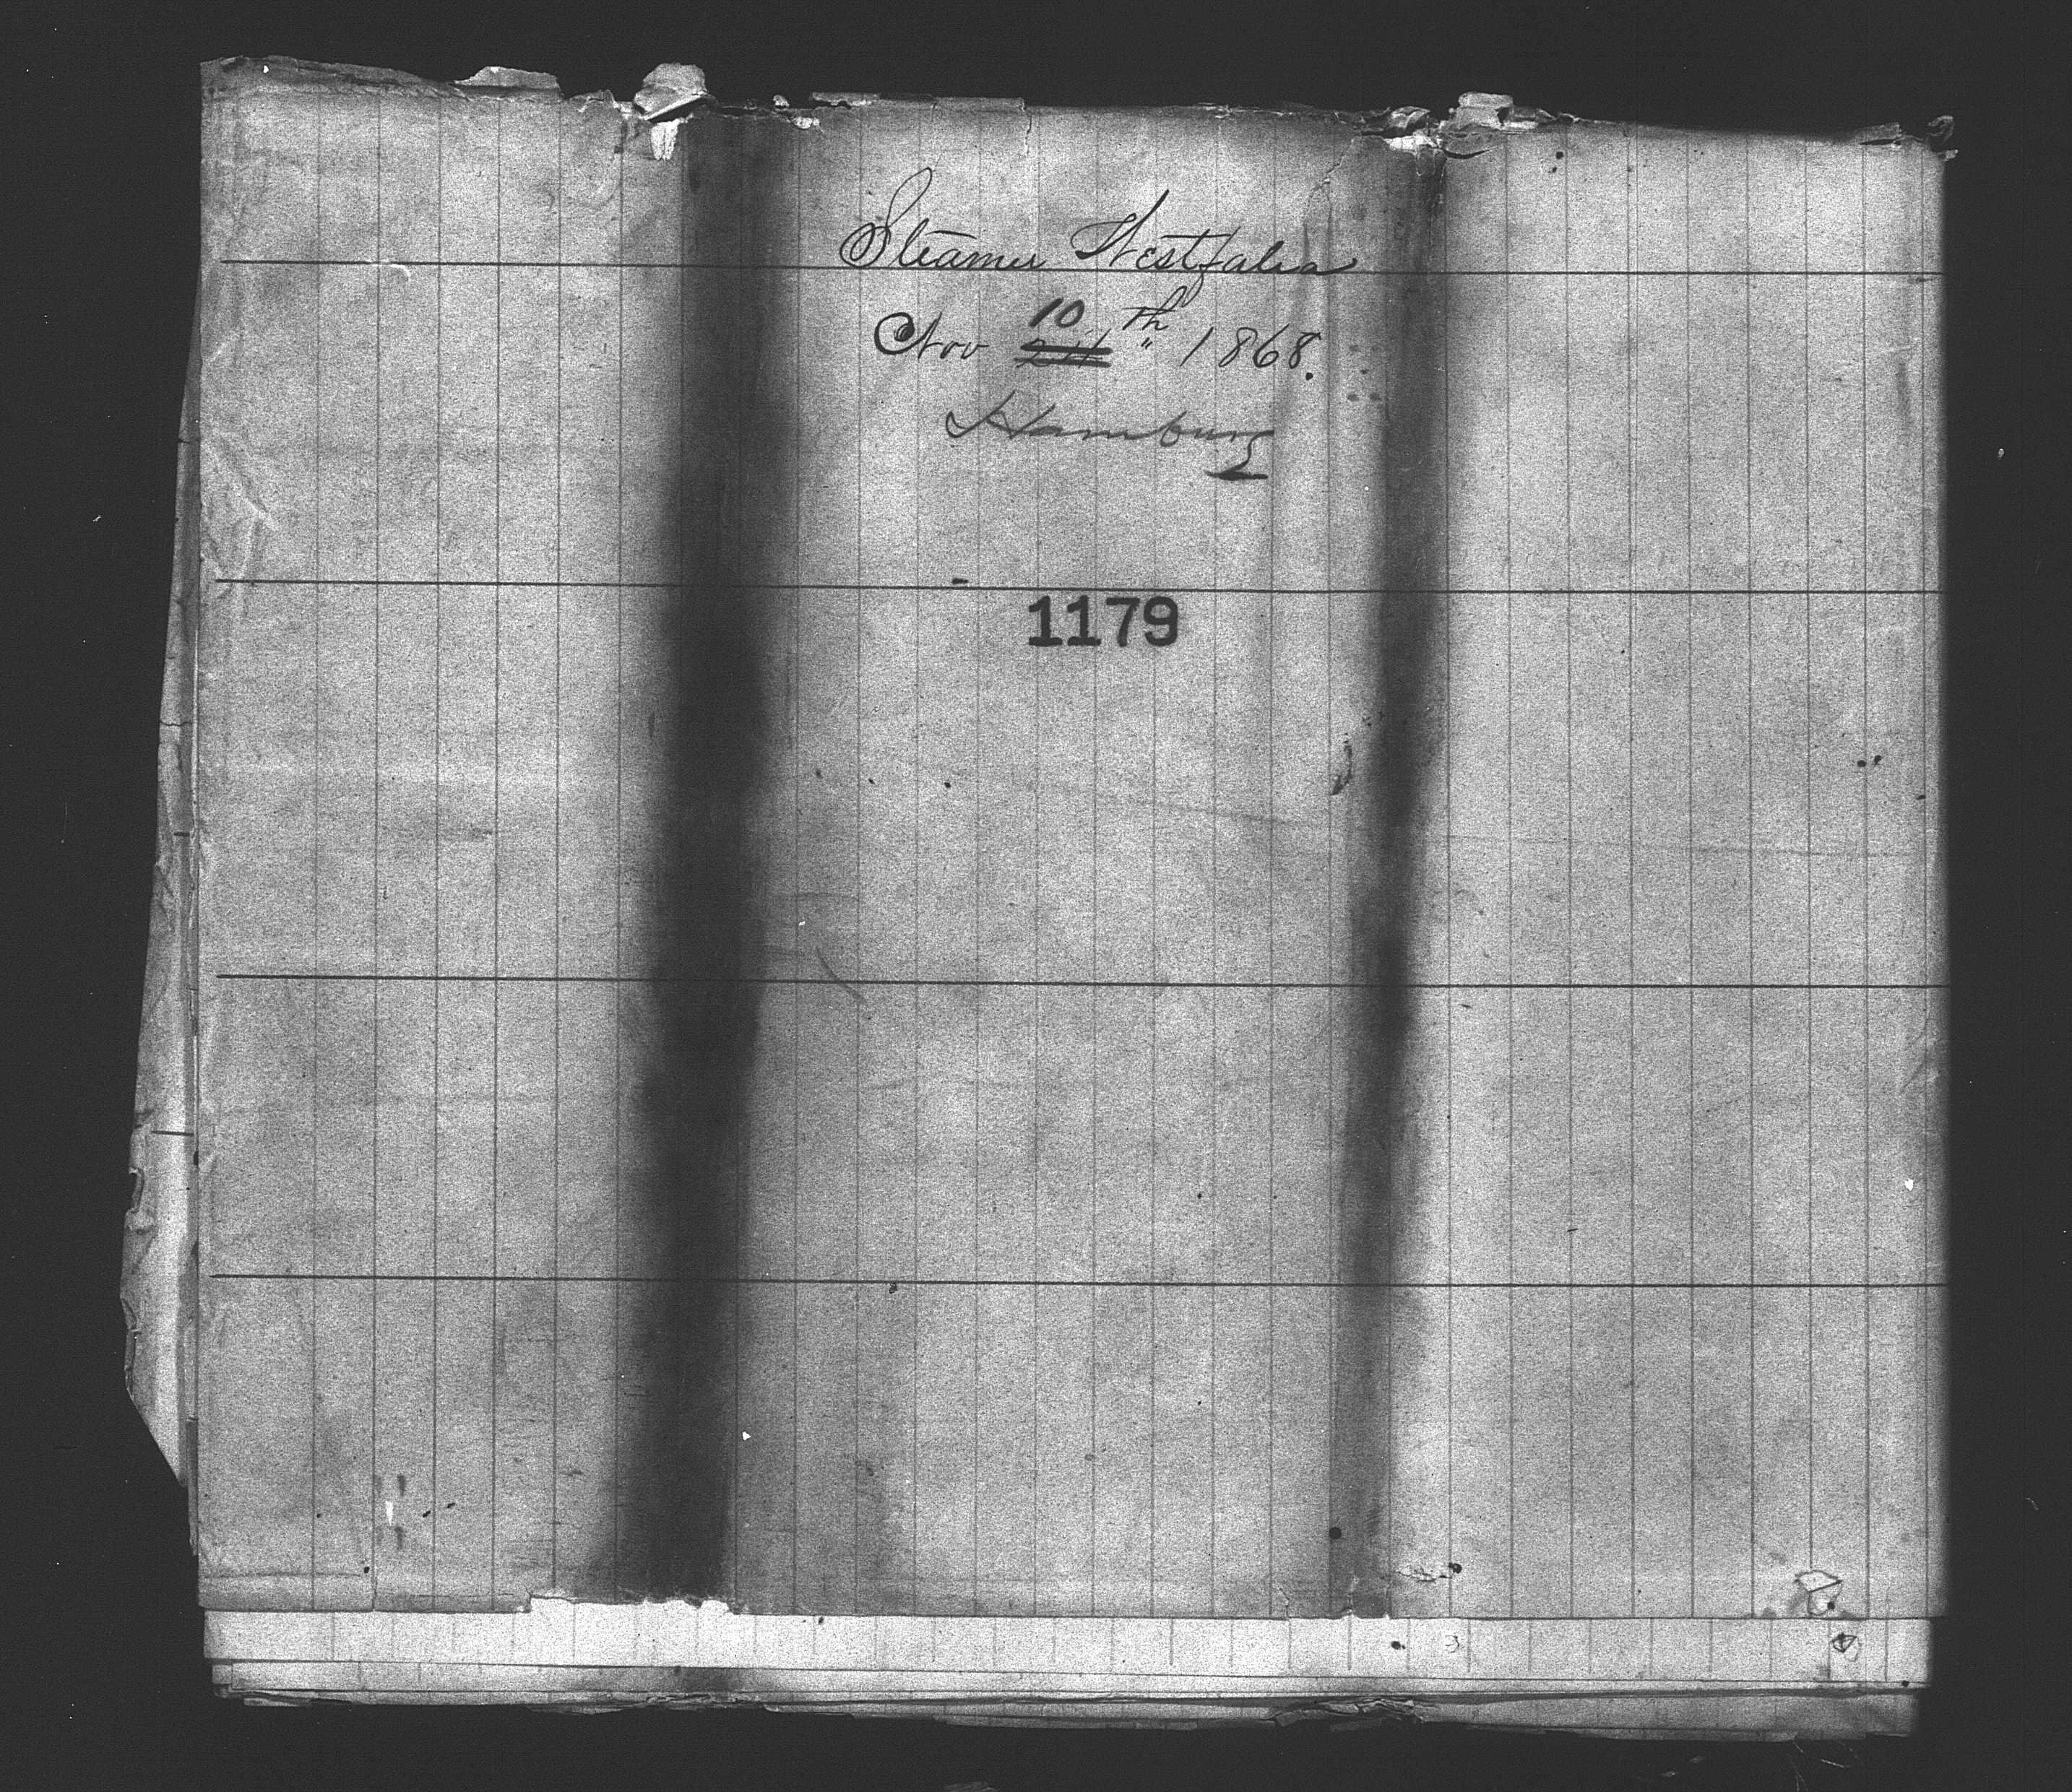 Steamer Westfalia
Nov 10th 1868.
Hamburg
1179